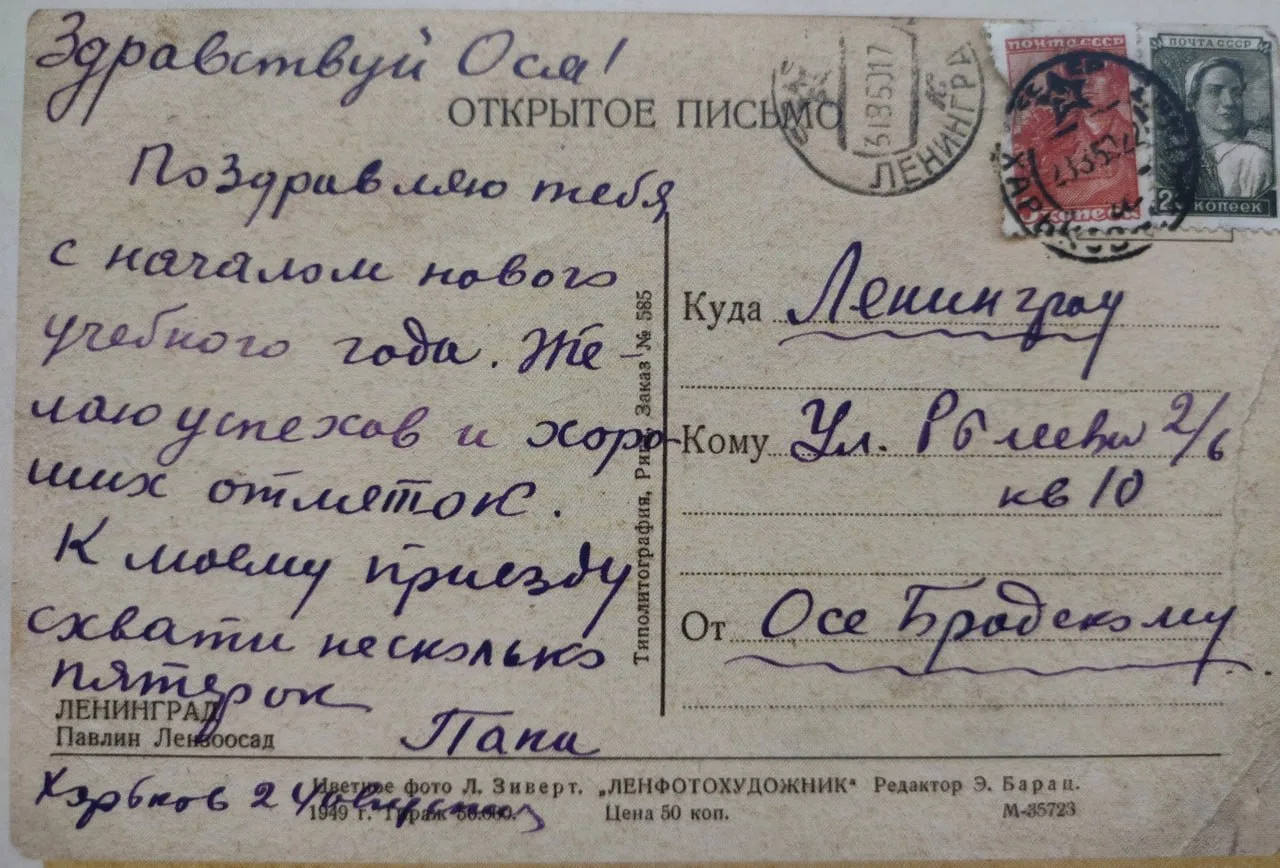 Здравствуй Ося!
ОТКРЫТОЕ ПИСЬМО
Поздравляю тебя
с началом нового
учебного года. Же-
лаю успехов и хоро-
ших отметок.
К моему приезду
схвати несколько
пятерок
Папа
ЛЕНИНГРАД
Павлин Лензоосад
Харьков 2
Типолитография, Рига, Заказ № 585
ПОЧТА СССР
КОПЕЕК
ПОЧТА СССР
КОПЕЕК
ЛЕНИНГРА
ХАРЬКОВ
Куда Ленинград
Кому Ул. 2/6
кв 10
От Осе Бродскому
Цветное фото Л. Зиверт. „ЛЕНФОТОХУДОЖНИК“ Редактор Э. Барац.
1949 г. Тираж 50.000. Цена 50 коп. М-35723